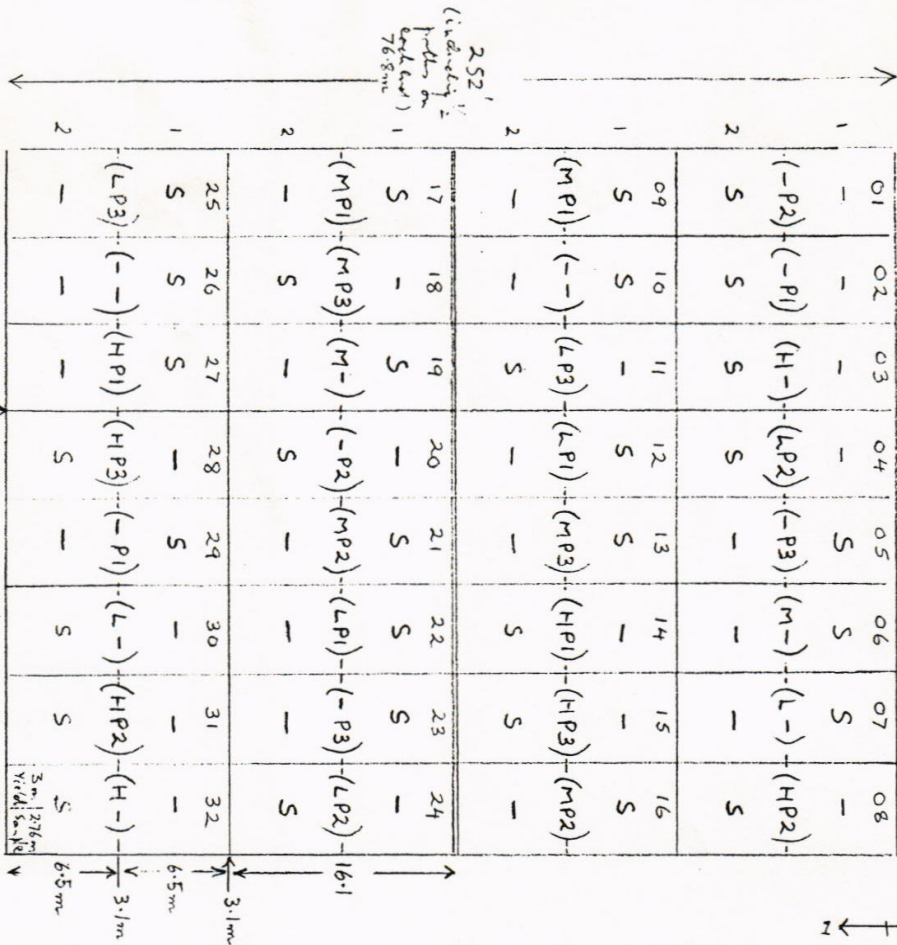 252'
(including ½
paths on
each end)
76.8m
01 02 03 04 05 06 07 08
1 - - - - S S S -
(-P2) (-P1) (H-) (LP2) (-P3) (M-) (L-) (HP2)
2 S S S S - - - S
09 10 11 12 13 14 15 16
1 S S - S S - - S
(MP1) (--) (LP3) (LP1) (MP3) (HP1) (HP3) (MP2)
2 - - S - - S S -
17 18 19 20 21 22 23 24
1 S - S - S S S -
(MP1) (MP3) (M-) (-P2) (MP2) (LP1) (-P3) (LP2) 16.1
2 - S - S - - - S
3.1m
25 26 27 28 29 30 31 32
1 S S S - S - - - 6.5m
(LP3) (--) (HP1) (HP3) (-P1) (L-) (HP2) (H-) 3.1m
2 - - - S - S S S 6.5m
3m 2.76m
Yield sample